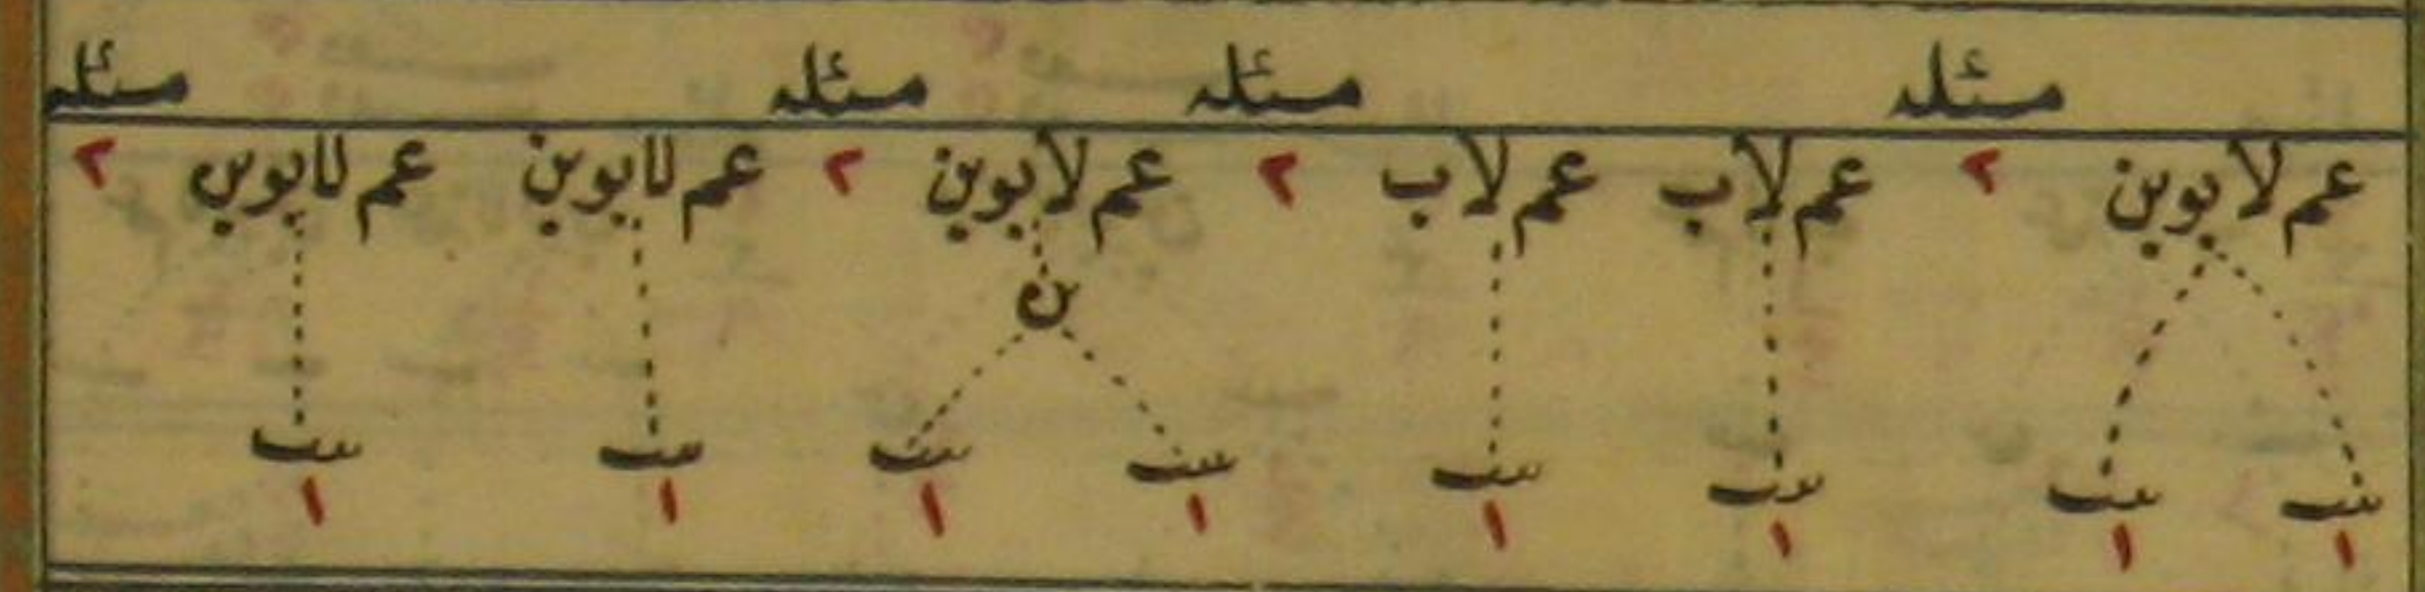 مسئله مسئله مسئله مسئله
عم لابوين ٢ عم لاب عم لاب ٢ عم لابوين ٢ عم لابوين عم لابوين ٢
بن
بنت بنت بنت بنت بنت بنت بنت بنت
١ ١ ١ ١ ١ ١ ١ ١